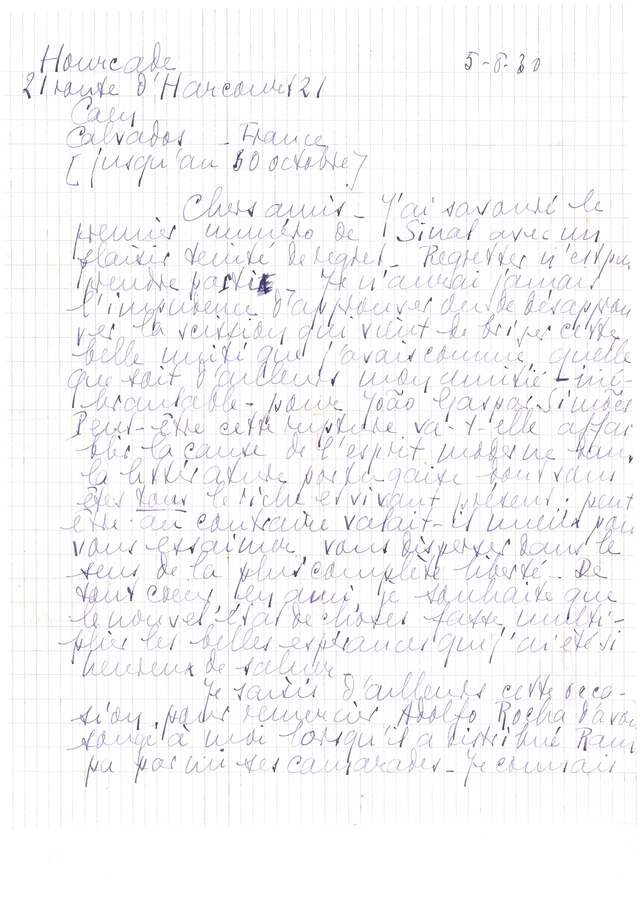 Hourcade 5-8-30
21 route d'Harcourt 21
Caen
Calvados - France
[jusqu'au 30 octobre]
Chers amis - J'ai savouré le
premier numéro de Sinal avec un
plaisir teinté de regret - Regretter n'est pas
prendre partie - Je n'aurai jamais
l'imprudence d'approuver ou de désapprou
ver la scission qui vient de briser cette
belle unité que j'avais connue quelle
que soit d'ailleurs mon amitié - iné-
branlable - pour João Gaspar Simões
Peut-être cette rupture va-t-elle affai
blir la cause de l'esprit moderne dans
la littérature portugaise dont vous
êtes tous le riche et vivant présent; peut
être au contraire valait-il mieux pour
vous essaimer vous disperser dans le
sens de la plus complète liberté. De
tout coeur en ami je souhaite que
le nouvel état de choses fasse multi-
plier les belles espérances que j'ai été si
heureux de saluer.
Je saisis d'ailleurs cette occa-
sion pour remercier Adolfo Rocha d'avoir
songé à moi lorsqu'il a distribué Ram
pa parmi ses camarades - Je connais